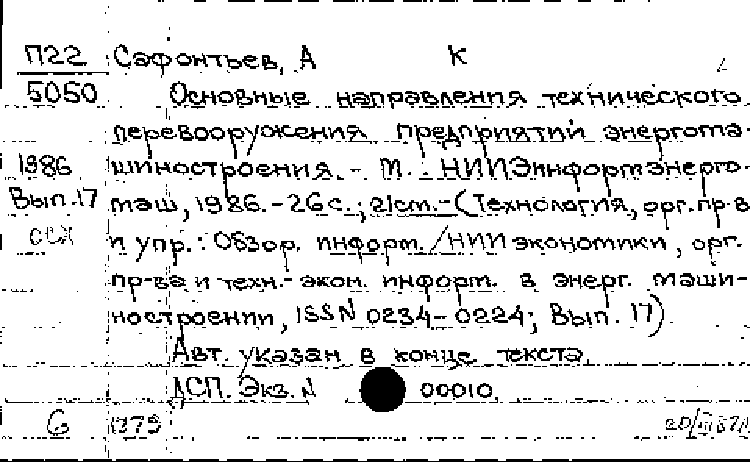 П22 Сафонтьев, А К
5050 Основные направления технического
перевооружения предприятий энергома-
1986 шиностроения. - М.: НИИЭинформэнерго-
Вып.17 маш, 1986. - 26 с.; 21см. - (Технология, орг. пр-ва
и упр.: Обзор. информ. / НИИ экономики, орг.
пр-ва и техн.-экон. информ. в энерг. маши-
ностроении, ISSN 0234-0224; Вып. 17)
Авт. указан в конце текста.
ДСП. Экз. N 00010.
6 1979